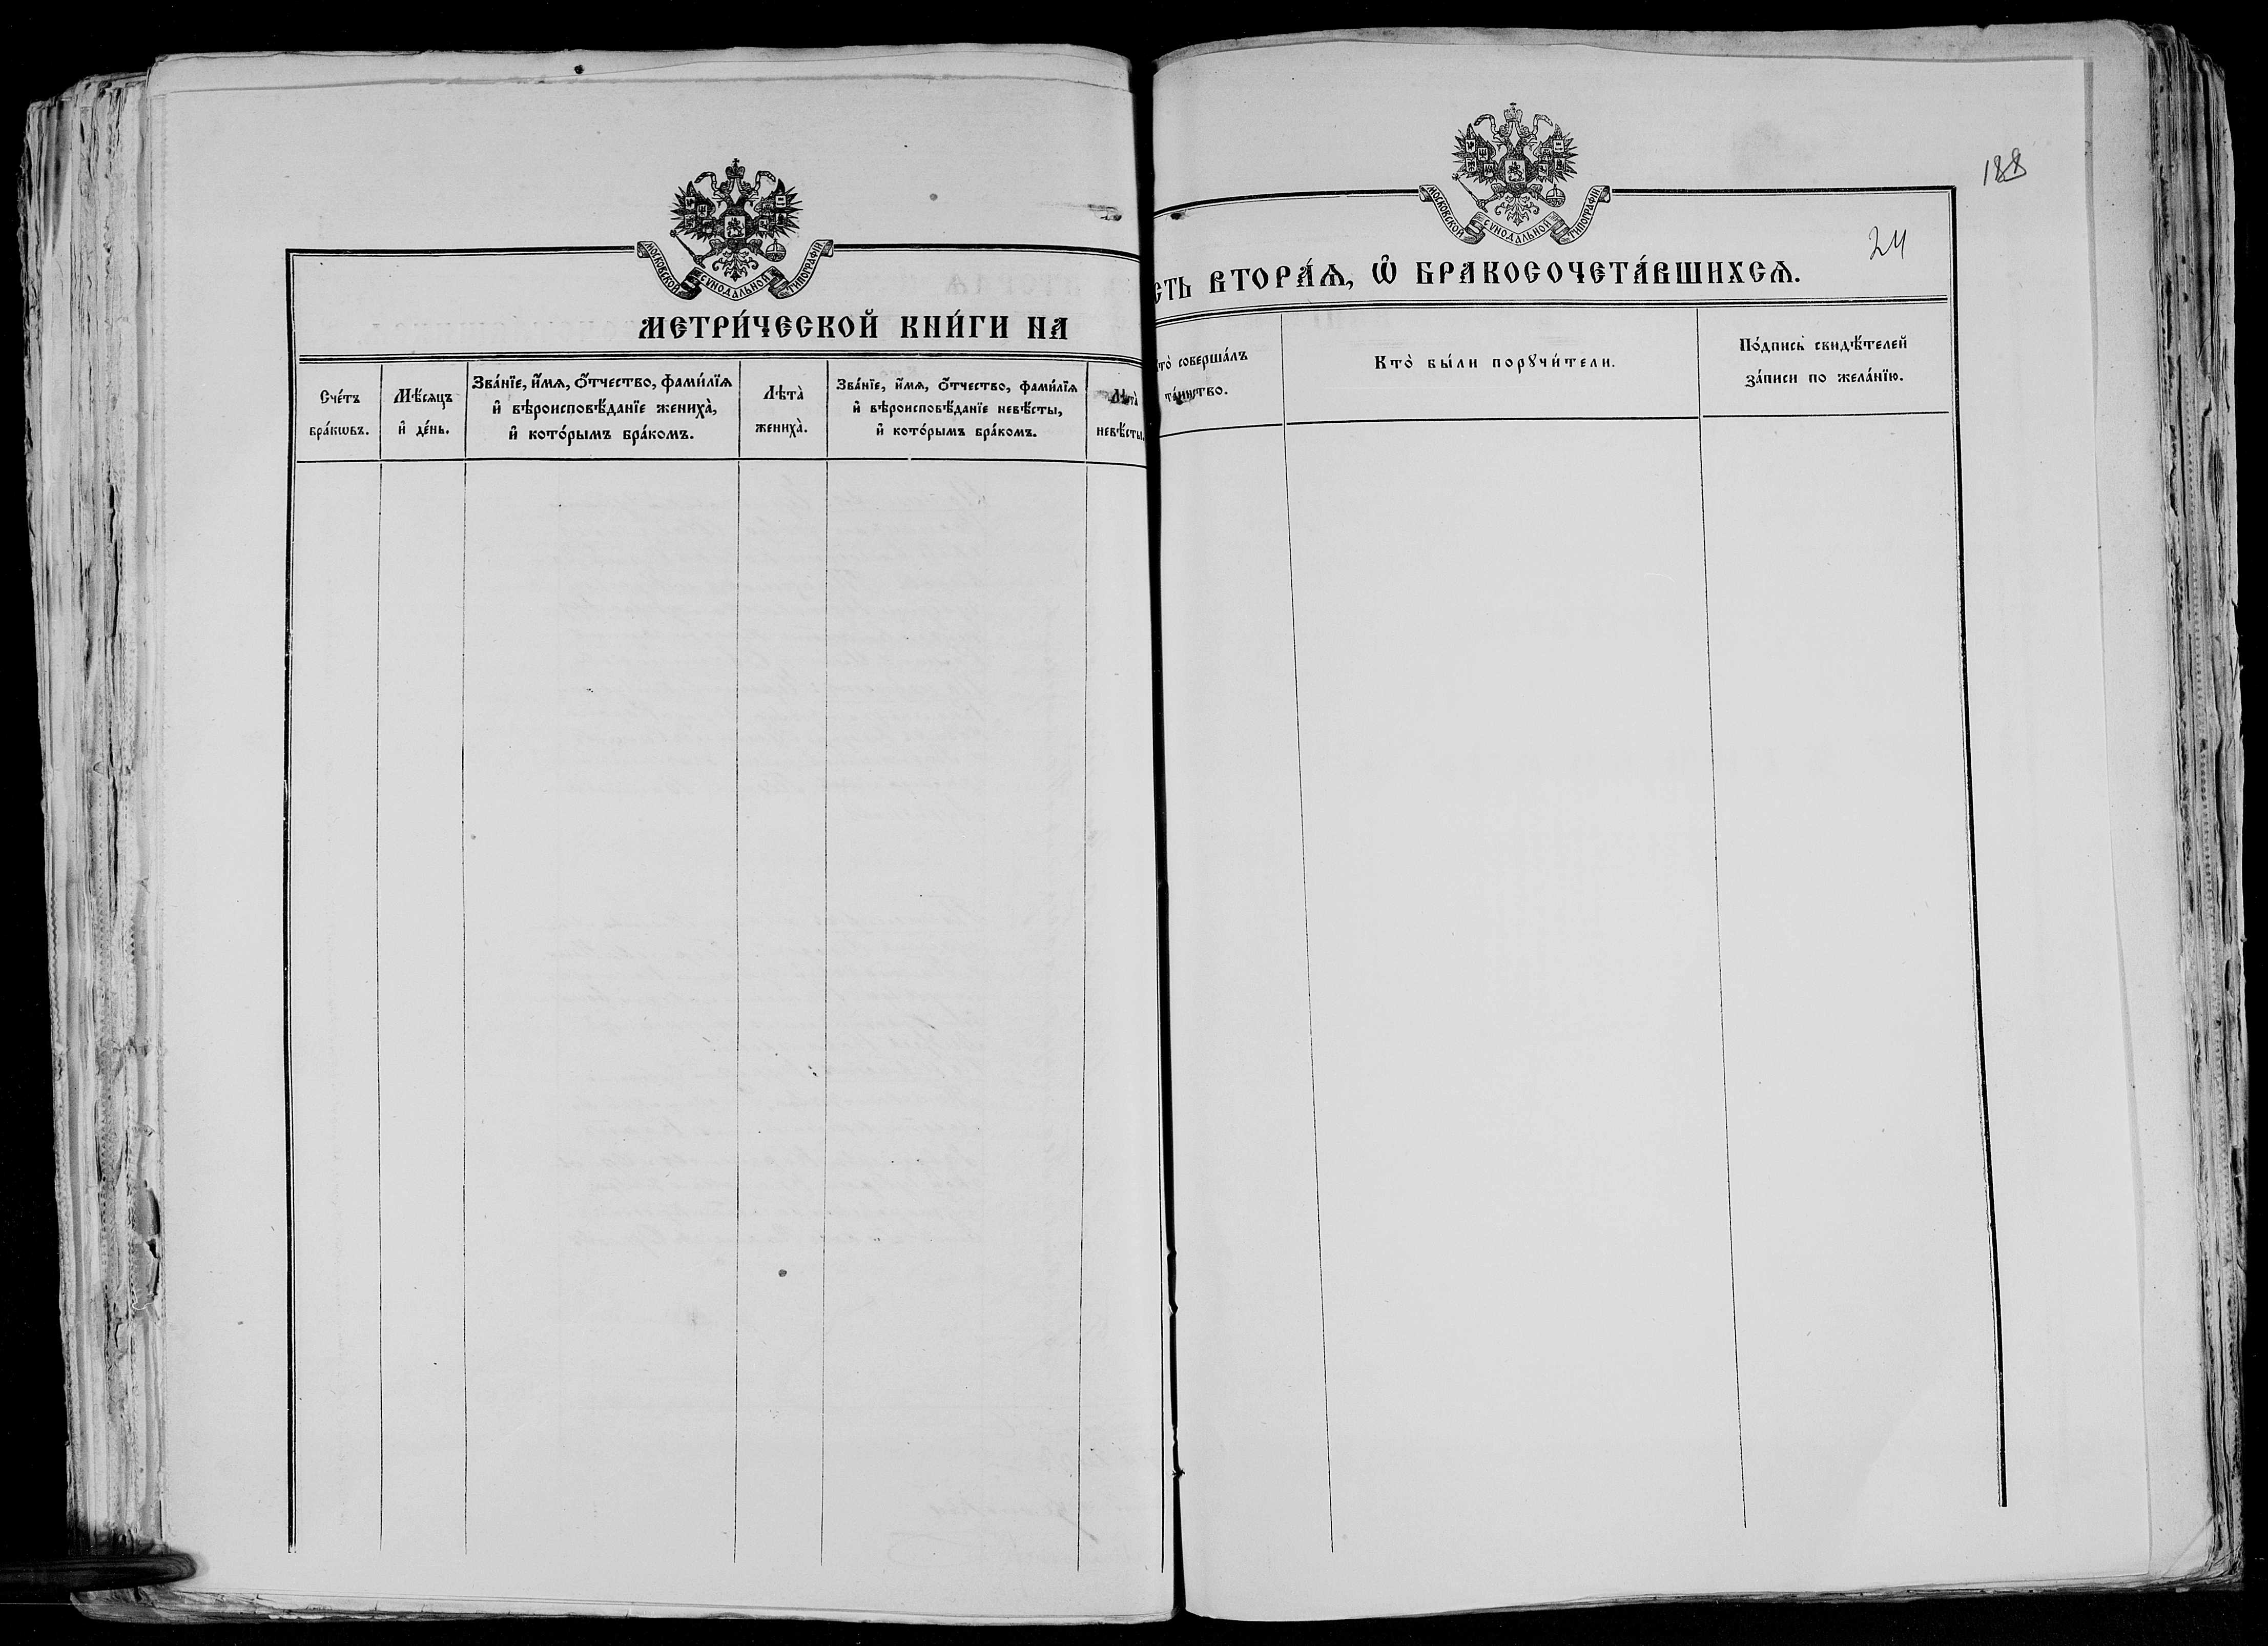 МОСКОВСКОЙ СѴНОДАЛЬНОЙ ТИПОГРАФІИ
МЕТРИ́ЧЕСКОЙ КНИ́ГИ НА
Сче́тъ
бра́кѡвъ.
Мѣ́сяцъ
и҆ де́нь.
Зва́нїе, и҆́мѧ, ѻ҆́тчество, фами́лїѧ
и҆ вѣроисповѣ́данїе жениха̀,
и҆ кото́рымъ бра́комъ.
Лѣта̀
жениха̀.
Зва́нїе, и҆́мѧ, ѻ҆́тчество, фами́лїѧ
и҆ вѣроисповѣ́данїе невѣ́сты,
и҆ кото́рымъ бра́комъ.
Лѣта̀
невѣ́сты.
188
МОСКОВСКОЙ СѴНОДАЛЬНОЙ ТИПОГРАФІИ
24
СТЬ ВТОРА́Ѧ, Ѽ БРАКОСОЧЕТА́ВШИХСѦ.
то̀ соверша́лъ
та́инство.
Кто̀ бы́ли порꙋчи́тели.
По́дпись свидѣ́телей
за́писи по жела́нїю.